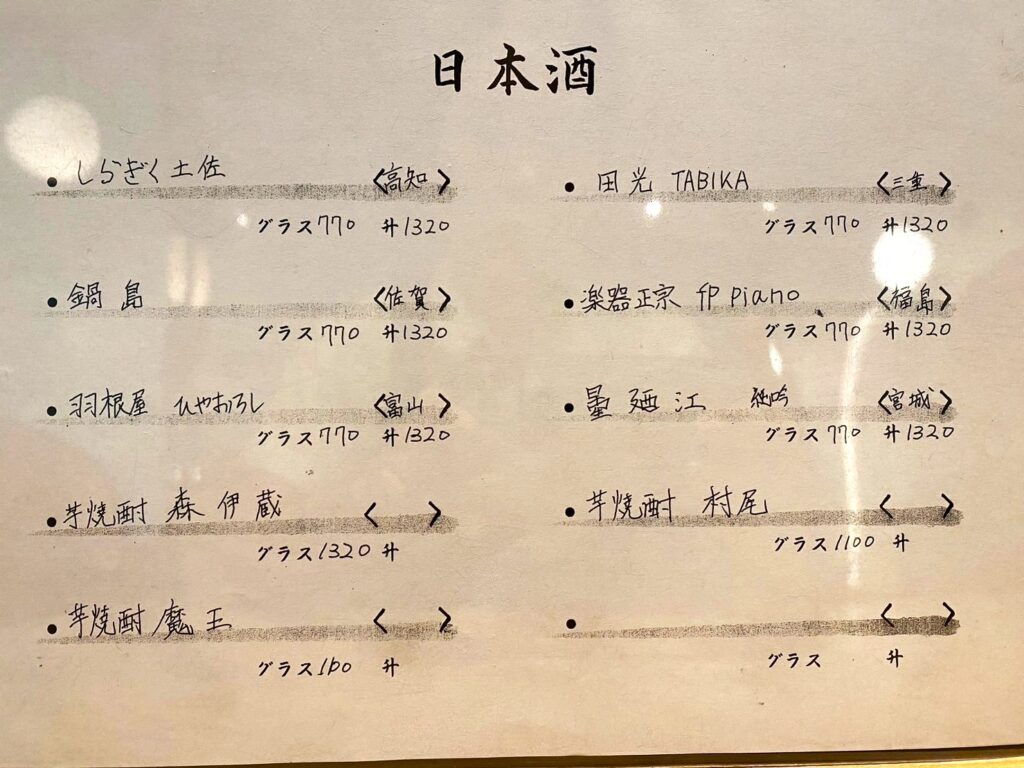 日本酒
しらぎく 土佐 <高知>
グラス770 升1320
鍋島 <佐賀>
グラス770 升1320
羽根屋 ひやおろし <富山>
グラス770 升1320
芋焼酎 森伊蔵 < >
グラス1320 升
芋焼酎 魔王 < >
グラス 升
田光 TABIKA <三重>
グラス770 升1320
楽器正宗 piano <福島>
グラス770 升1320
墨廼江 純吟 <宮城>
グラス770 升1320
芋焼酎 村尾 < >
グラス1100 升
< >
グラス 升